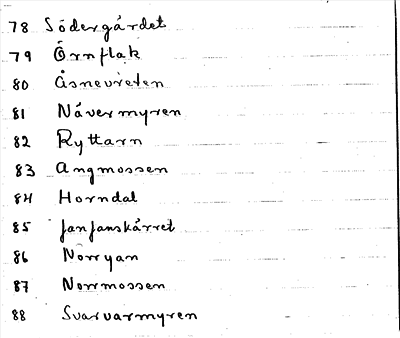 78 Södergärdet
79 Örnflak
80 Åsnevreten
81 Nävermyren
82 Ryttarn
83 Angmossen
84 Horndal
85 Janjanskärret
86 Norryan
87 Norrmossen
88 Svarvarmyren